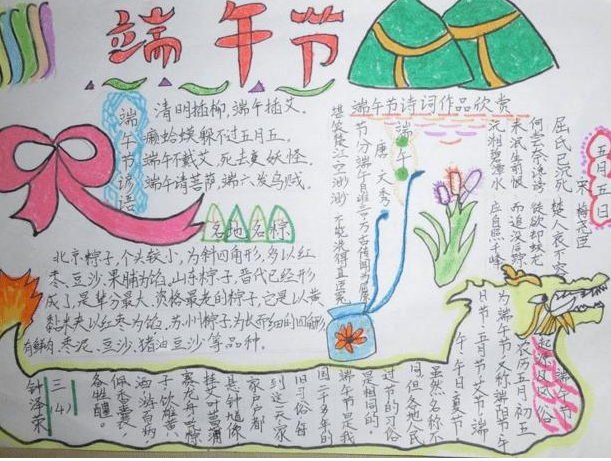 端午节
端午节谚语
清明插柳,端午插艾。
癞蛤蟆躲不过五月五。
端午不戴艾,死去变妖怪。
端午请菩萨,端六发乌贼。
各地名粽
北京粽子,个头较小,为斜四角形,多以红
枣、豆沙、果脯为馅。山东粽子,晋代已经形
成了,是草分最大、资格最老的粽子,它是以黄
黏米夹以红枣为馅。苏州粽子为长而细的四角形
有鲜肉、枣泥、豆沙、猪油豆沙等品种。
端午节诗词作品欣赏
端午
唐 文秀
节分端午自谁言,万古传闻为屈原。
堪笑楚江空渺渺,不能洗得直臣冤。
五月五日
宋 梅尧臣
屈氏已沉死,楚人哀不容。
何尝奈谗谤,徒欲却蛟龙。
未泯生前恨,而追没后踪。
沅湘碧潭水,应自照千峰。
端午节
起源及风俗
农历五月初五
为端午节,又称端阳节、午
日节、五月节、艾节、端
午、午日、夏节。
虽然名称不
同,但各地人民
过节的习俗
是相同的。
端午节是我
国二千多年的
旧习俗,每
到这一天,家
家户户都
悬钟馗像,
挂艾叶菖蒲,
赛龙舟,吃粽
子,饮雄黄
酒,游百病,
佩香囊,
备牲醴。
三(4)
钟泽荣